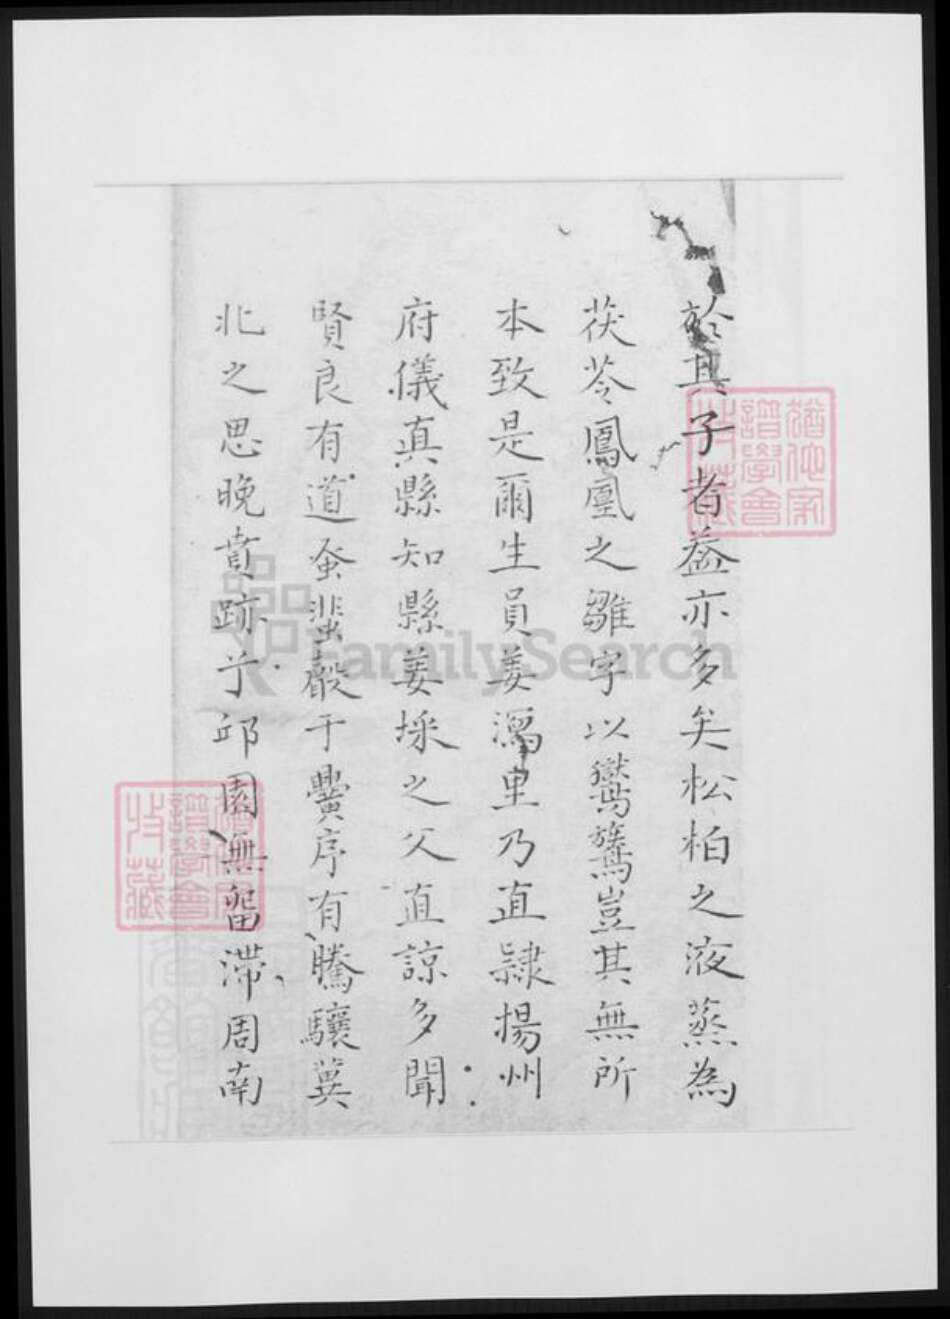 於其子者益亦多矣松柏之液蒸為
茯苓鳳凰之雛字以鸑鷟豈其無所
本致是爾生員姜瀉里乃直隸揚州
府儀真縣知縣姜埰之父直諒多聞
賢良有道蚤蜚聲于黌序有騰驤冀
北之思晚賁跡于邱園無留滯周南
譜學會
收藏
譜學會
收藏
FamilySearch